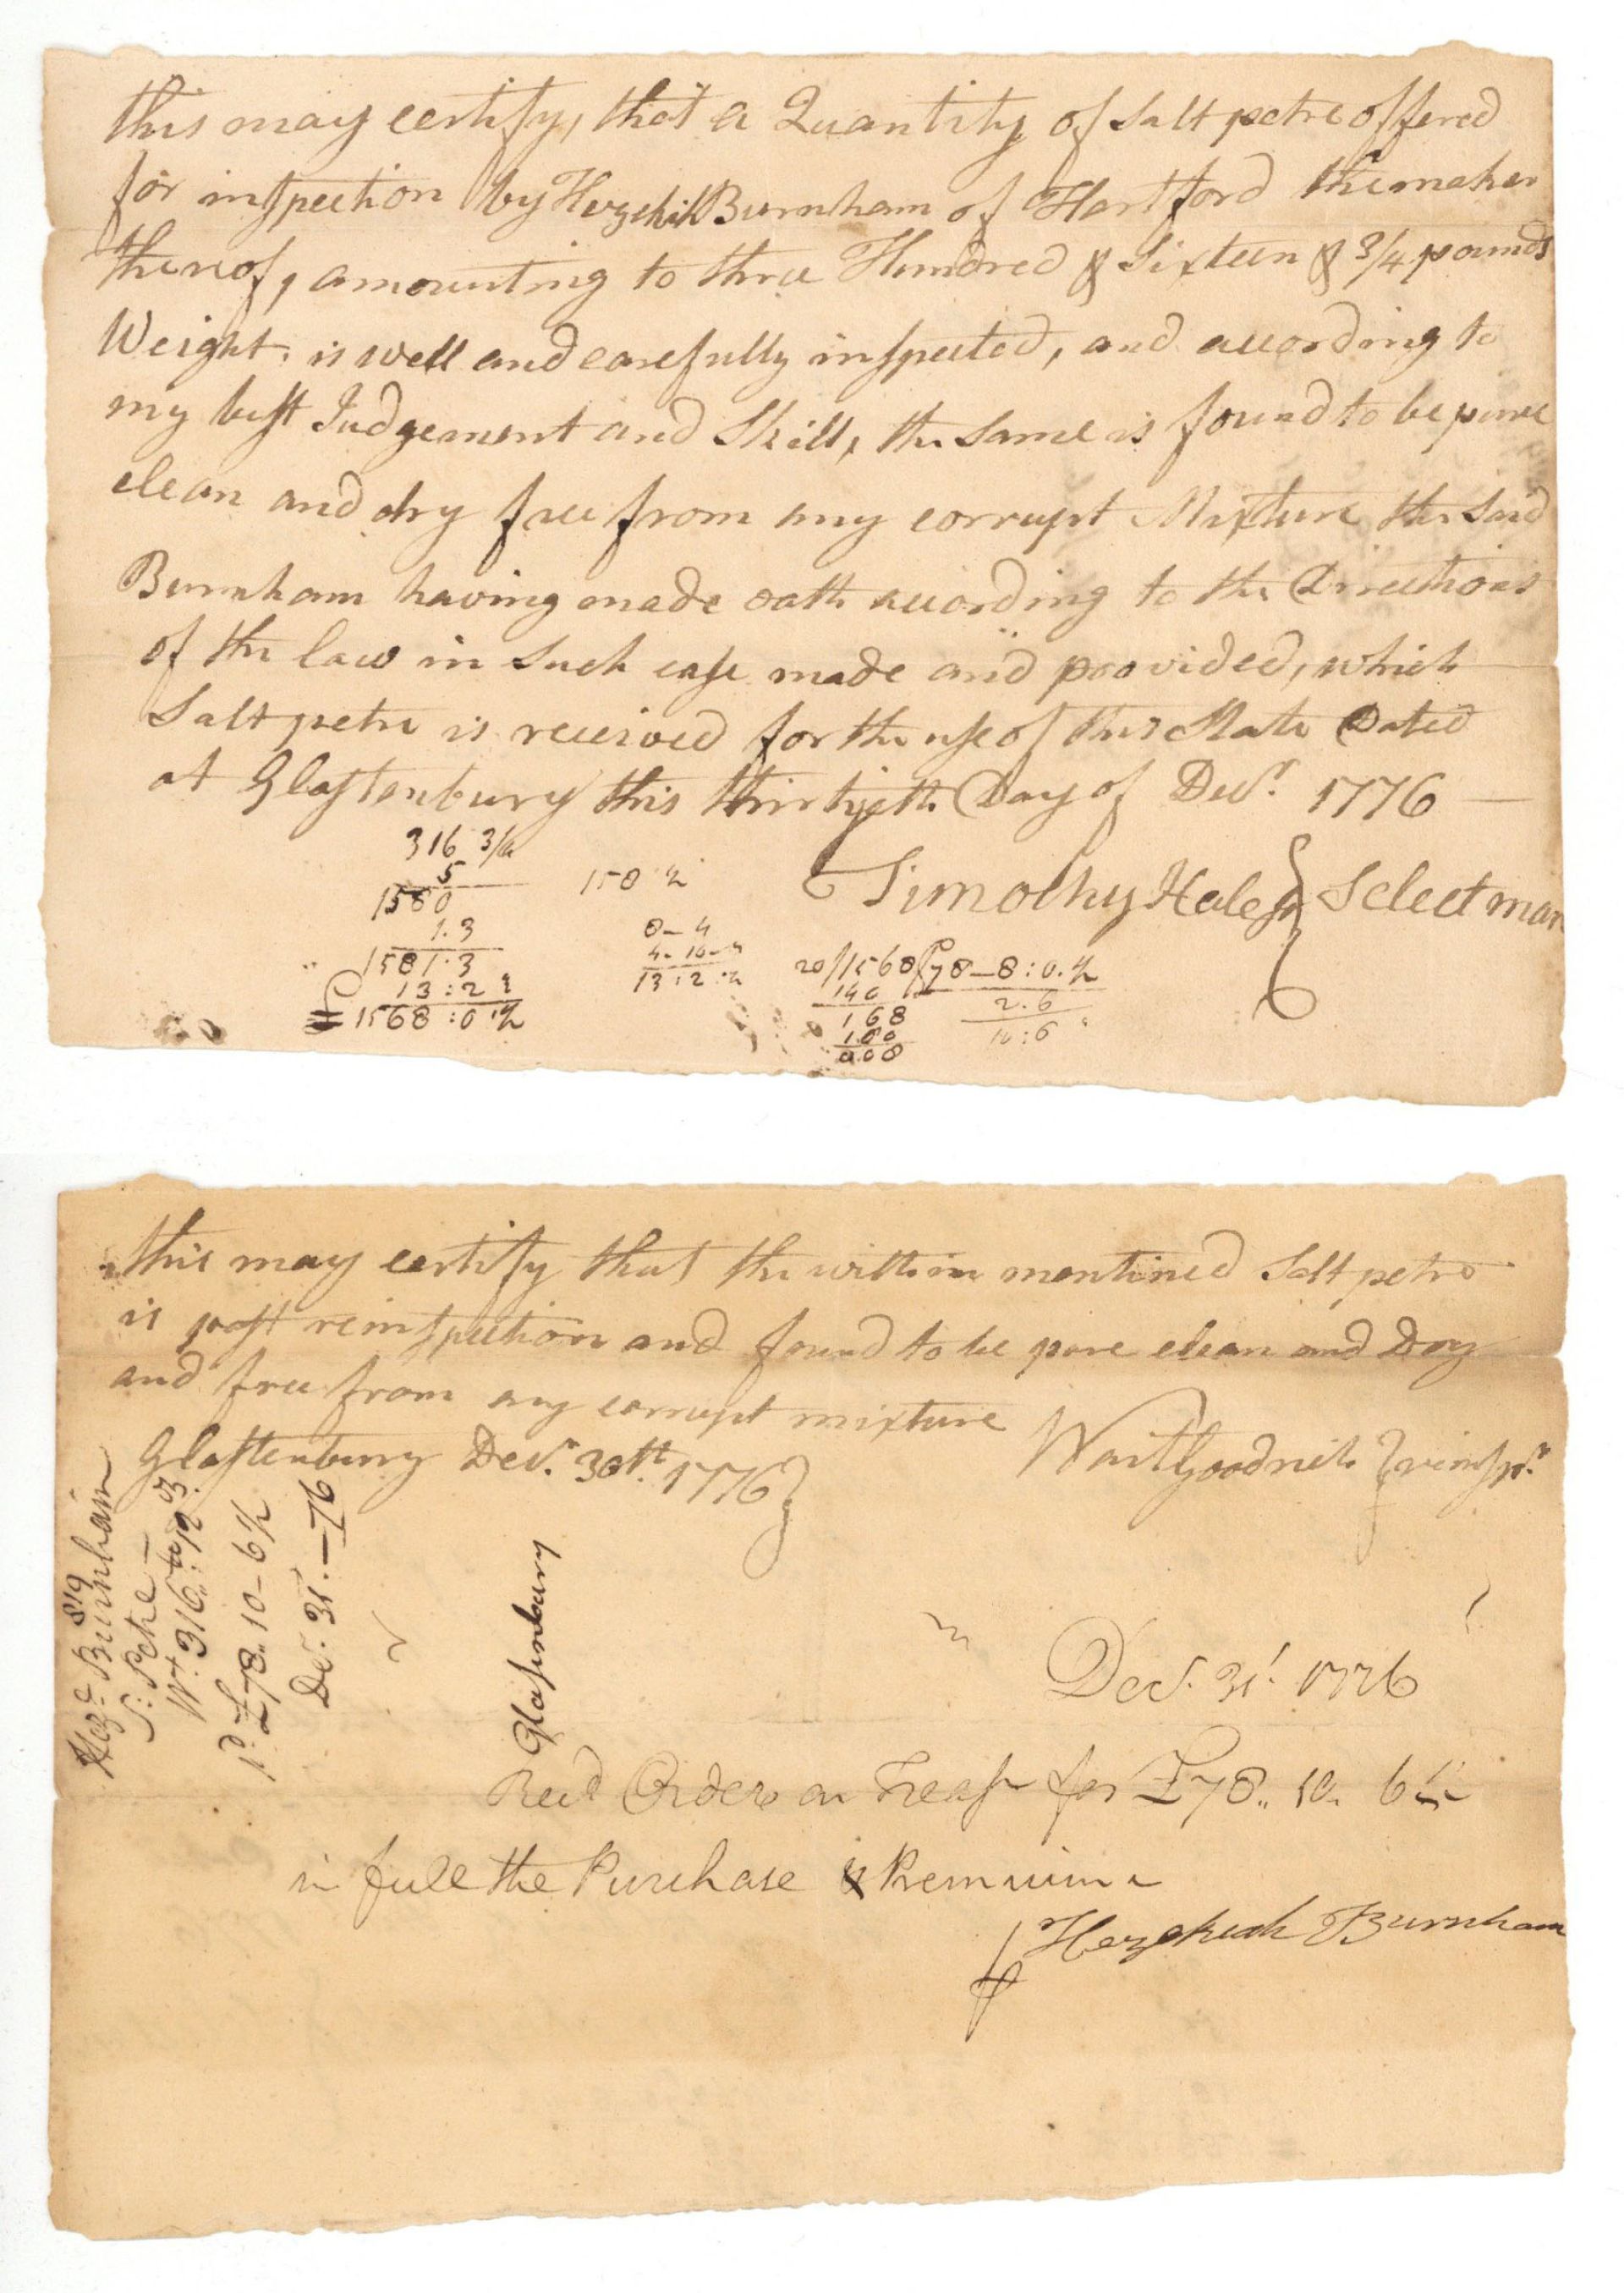 this may certify, that a Quantity of Saltpetre offered
for inspection by Hezekiah Burnham of Hartford the maker
thereof, amounting to three Hundred & Sixteen & 3/4 pounds
Weight, is well and carefully inspected, and according to
my best Judgement and Skill, the Same is found to be pure
clean and dry free from any corrupt Mixture the Said
Burnham having made oath according to the Directions
of the law in Such case made and provided, which
Saltpetre is received for the use of this State Dated
at Glastenbury this thirtyeth Day of Decr. 1776
Timothy Hale Jr } Selectman
316 3/4
5
1580
1.3
1581.3
13:2
1568:0 1/2
158 1/2
8-4
13:2
20/1568/78-8:0.1/2
140
168
160
008
2.6
10:6
this may certify that the within mentined Saltpetre
is past reinspection and found to be pure clean and Dry
and free from any corrupt mixture
Glastenbury Decr. 30th. 1776 }
Wait Goodrich } reinspr.
819
Heze. Burnham
S: Petre
Wt. 316 lb: 12 oz.
pd. £78.. 10-6 1/2
Dec. 31.-76
Glasenbury
Decr. 31t. 1776
Recd Order on Treasr for £78.. 10. 6 1/2
in full the Purchase & Premium
Hezekiah Burnham